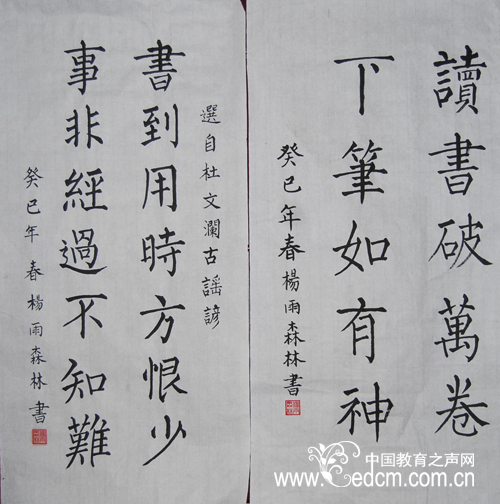 讀書破萬卷
下筆如有神
癸巳年春楊雨森林書
選自杜文瀾古謡諺
書到用時方恨少
事非經過不知難
癸巳年春楊雨森林書
中国教育之声网
www.edcm.com.cn